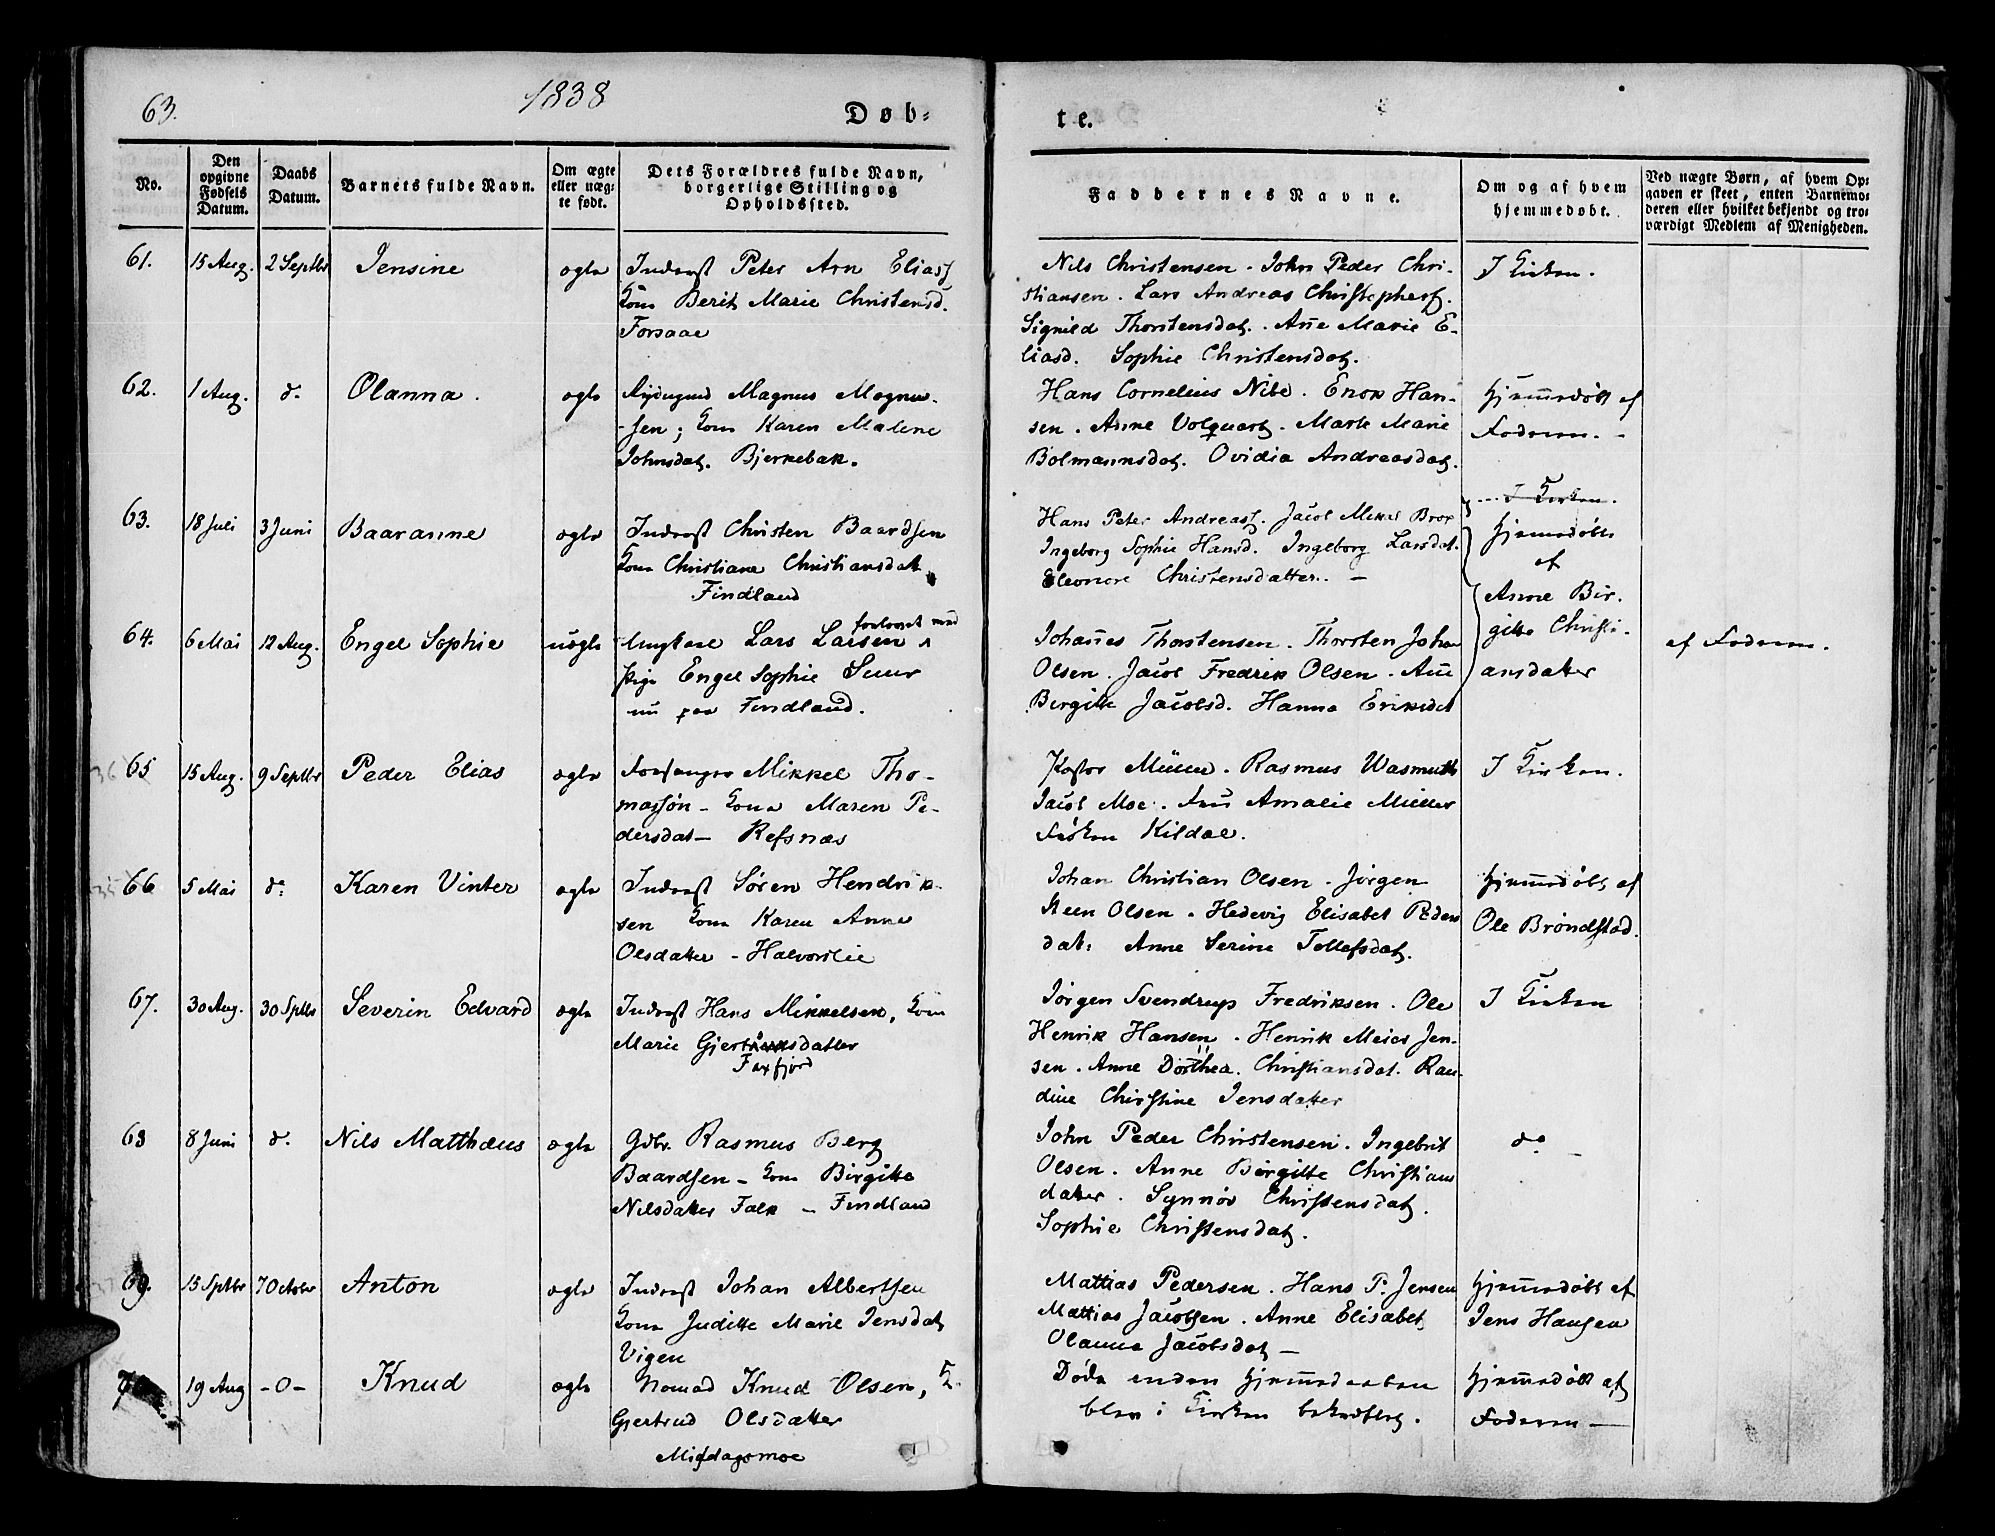 63.
1838
Døb-
te.
No.
Den opgivne Fødsels Datum.
Daabs Datum.
Barnets fulde Navn.
Om ægte eller uæg- te født.
Dets Forældres fulde Navn, borgerlige Stilling og Opholdssted.
Faddernes Navne.
Om og af hvem hjemmedøbt.
Ved uægte Børn, af hvem Op- gaven er skeet, enten Barnemo- deren eller hvilket bekjendt og tro- værdigt Medlem af Menigheden.
61. 15 Aug. 2 Septbr Jensine ægte Inderst Peter Arn Eliass
Kone Berit Marie Christensd.
Forsaae
Nils Christensen. John Peder Chri-
stiansen. Lars Andreas Christophers.
Signild Thorstensdat. Ane Marie E-
liasd. Sophie Christensdat.
I Kirken.
62. 1 Aug. do. Olanna. ægte Magnus Magnus-
sen; Kone Karen Malene
Johnsdat. Bjerkebak.
Hans Cornelius Nibe. Enok Han-
sen. Anne Volquarts. Marte Marie
Bolmannsdat. Ovidia Andreasdat.
Hjemmedøbt af
Faderen.
63. 18 Juli 3 Juni Baaranne ægte Inderst Christen Baardsen
Kone Christiane Christiansdat
Findland
Hans Peter Andreass. Jacob Mikal Brox
Ingeborg Sophie Hansd. Ingeborg Larsdat.
Eleonore Christensdatter. —
I Kirken.
Hjemmedøbt
af
Anne Bir-
gitte Christi-
ansdatter
64. 6 Mai 12 Aug. Engel Sophie uægte Ungkarl Lars Larsen forlovet med
Pige Engel Sophie
nu paa Findland.
Johannes Thorstensen. Thorsten Johan
Olsen. Jacob Fredrik Olsen. Ane
Birgitte Jacobsd. Hanna Eriksdat
af Faderen.
65 15 Aug. 9 Septbr Peder Elias ægte Forsanger Mikkel Tho-
massøn — Kone Maren Pe-
dersdat — Refsnæs
Pastor Müller. Rasmus Wasmuth
Jacob Moe. Fru Amalie Müller
Frøken Kildal.
I Kirken.
66 5 Mai do: Karen Vinter ægte Inderst Sören Hendrik-
sen Kone Karen Anne
Olsdatter — Halvorslie
Johan Christian Olsen. Jørgen
Steen Olsen. Hedevig Elisabet Peders
dat: Anne Serine Tollefsdat.
Hjemmedøbt af
Ole Brøndstad.
67. 30 Aug. 30 Septbr Severin Edvard ægte Inderst Hans Mikkelsen, Kone
Marie Gjertsdatter
Faxfjord
Jørgen Svendrup Fredriksen. Ole
Henrik Hansen. Henrik Meier Jen-
sen. Anne Dorthea Christiansdat. Ran-
dine Christine Jensdatter
I Kirken
68 8 Juni do. Nils Matthæus ægte Gdbr. Rasmus Berg
Baardsen — Kone Birgitte
Nilsdatter Falk — Findland
John Peder Christensen. Ingebrit
Olsen. Anne Birgitte Christians
datter. Synnöv Christensdat.
Sophie Christensdat.
do.
69. 15 Septbr 7 October Anton ægte Inderst Johan Albertsen
Kone Juditte Marie Jensdat
Vigen
Mattias Pedersen. Hans P. Jensen
Mattias Jacobsen. Anne Elisabet
Olanna Jacobsdat —
Hjemmedøbt af
Jens Hansen
19 Aug -0- Knud ægte Nomad Knud Olsen, K.
Gjertrud Olsdatter
Middagsmoe
Døde inden Hjemmedaaben
blev i Kirken bekræftet.
Hjemmedøbt af
Faderen —